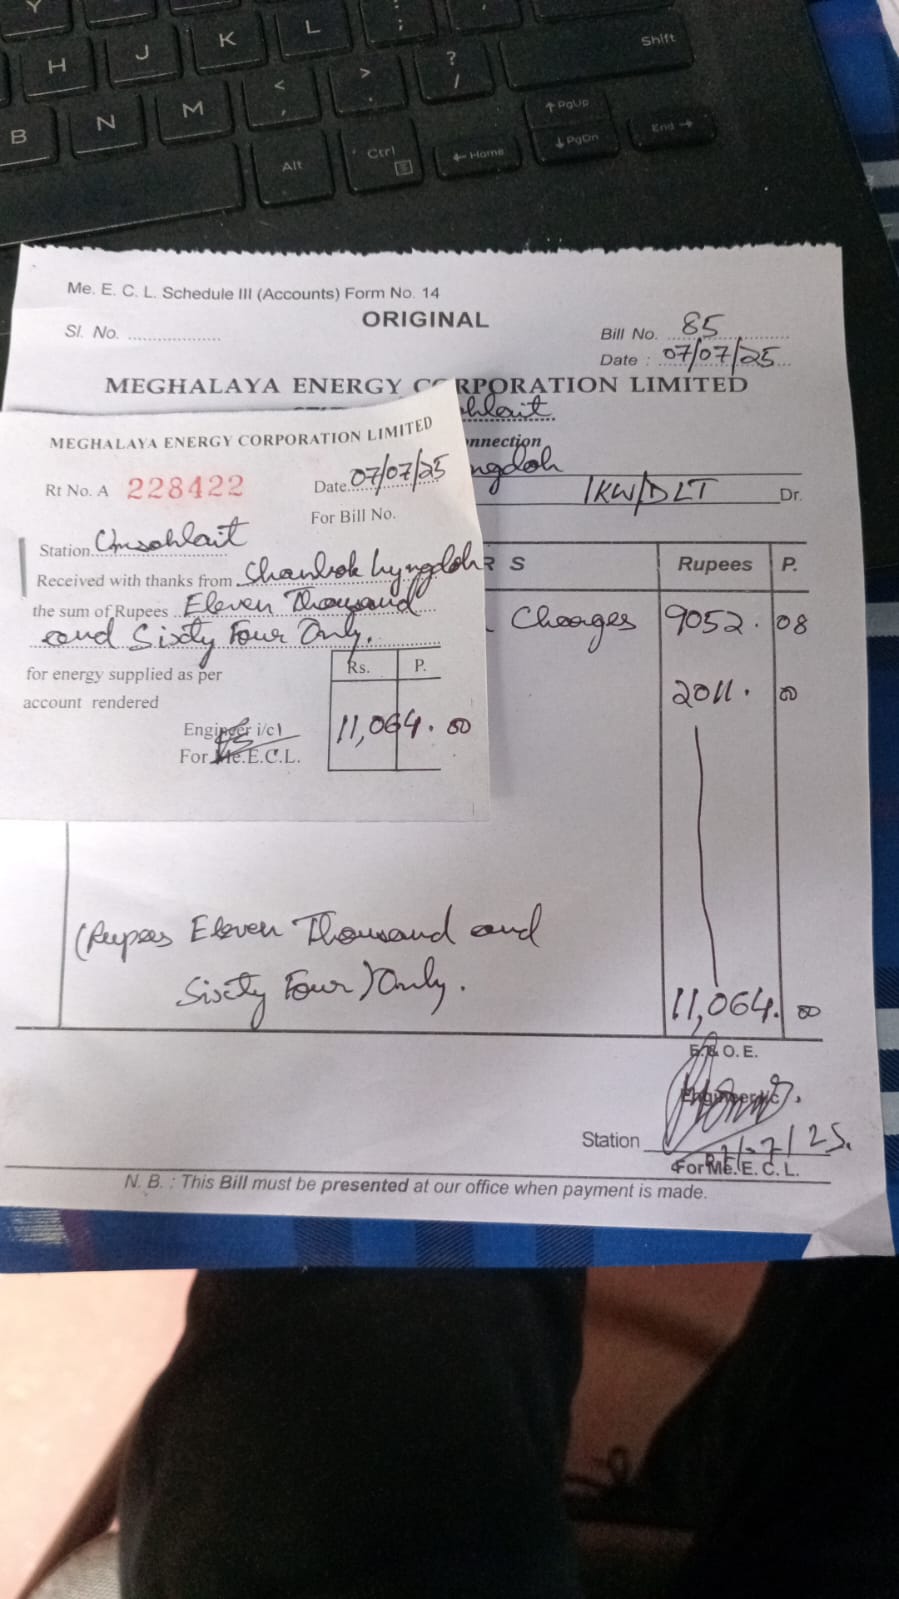 Y
H J K L : ;
B N M < , > . ? / Shift
Alt Ctrl ← Home ↑ PgUp ↓ PgDn End →
Me. E. C. L. Schedule III (Accounts) Form No. 14
ORIGINAL
Sl. No. ...................
Bill No. 85
Date : 07/07/25
MEGHALAYA ENERGY CORPORATION LIMITED
hlait
nnection
ngdoh
1KW/DLT Dr.
R S Rupees P.
Charges 9052. 08
2011. 00
(Rupees Eleven Thousand and
Sixty Four) Only.
11,064. 00
E.& O. E.
Engineer i/c
Station
7/25.
For Me. E. C. L.
N. B. : This Bill must be presented at our office when payment is made.
MEGHALAYA ENERGY CORPORATION LIMITED
Rt No. A 228422 Date 07/07/25
For Bill No.
Station Umsohlait
Received with thanks from Shanbok Lyngdoh
the sum of Rupees Eleven Thousand
and Sixty Four Only.
for energy supplied as per
account rendered
Rs. P.
11,064. 00
Engineer i/c1
For Me.E.C.L.